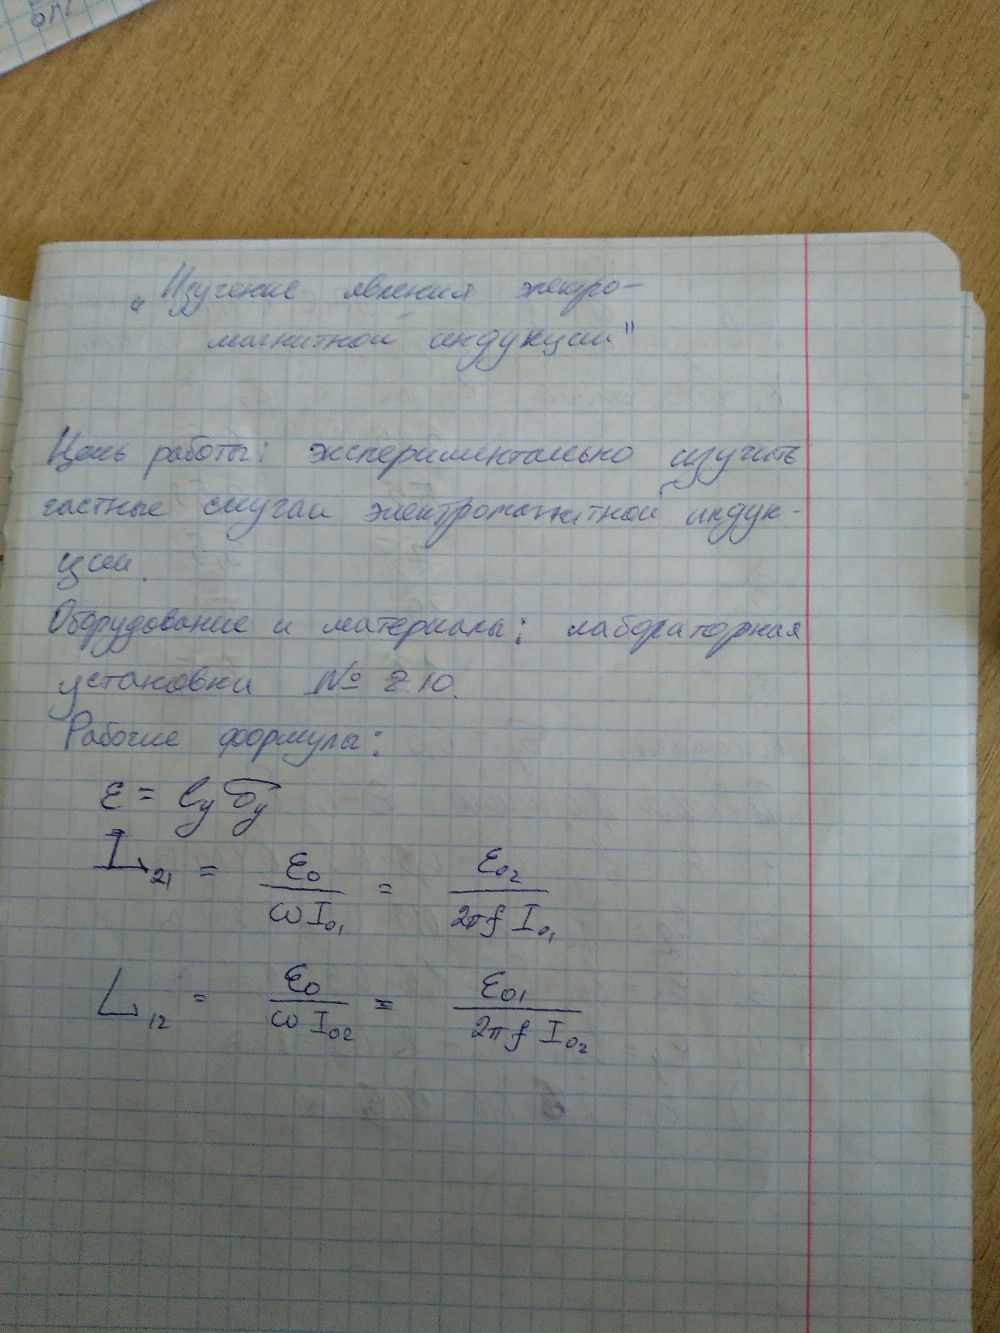 „Изучение явления электро-
магнитной индукции"
Цель работы: экспериментально изучить
частные случаи электромагнитной индук-
ции.
Оборудование и материалы: лабораторная
установки № 2.10.
Рабочие формулы:
ε =
L₂₁ = ε₀ / ωI₀₁ = ε₀₂ / 2πf I₀₁
L₁₂ = ε₀ / ωI₀₂ = ε₀₁ / 2πf I₀₂